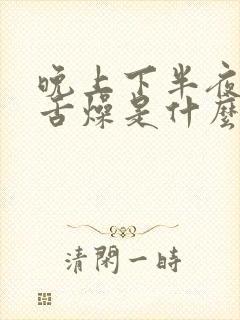 晚上下半夜
舌燥是什麼
清閑一時